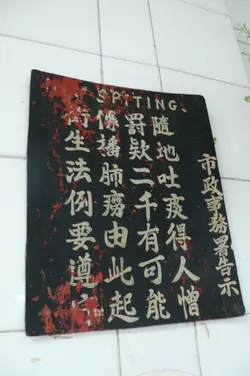 SPITING
隨地吐痰得人憎
罰欵二千有可能
傳播肺癆由此起
衛生法例要遵守
市政事務署告示